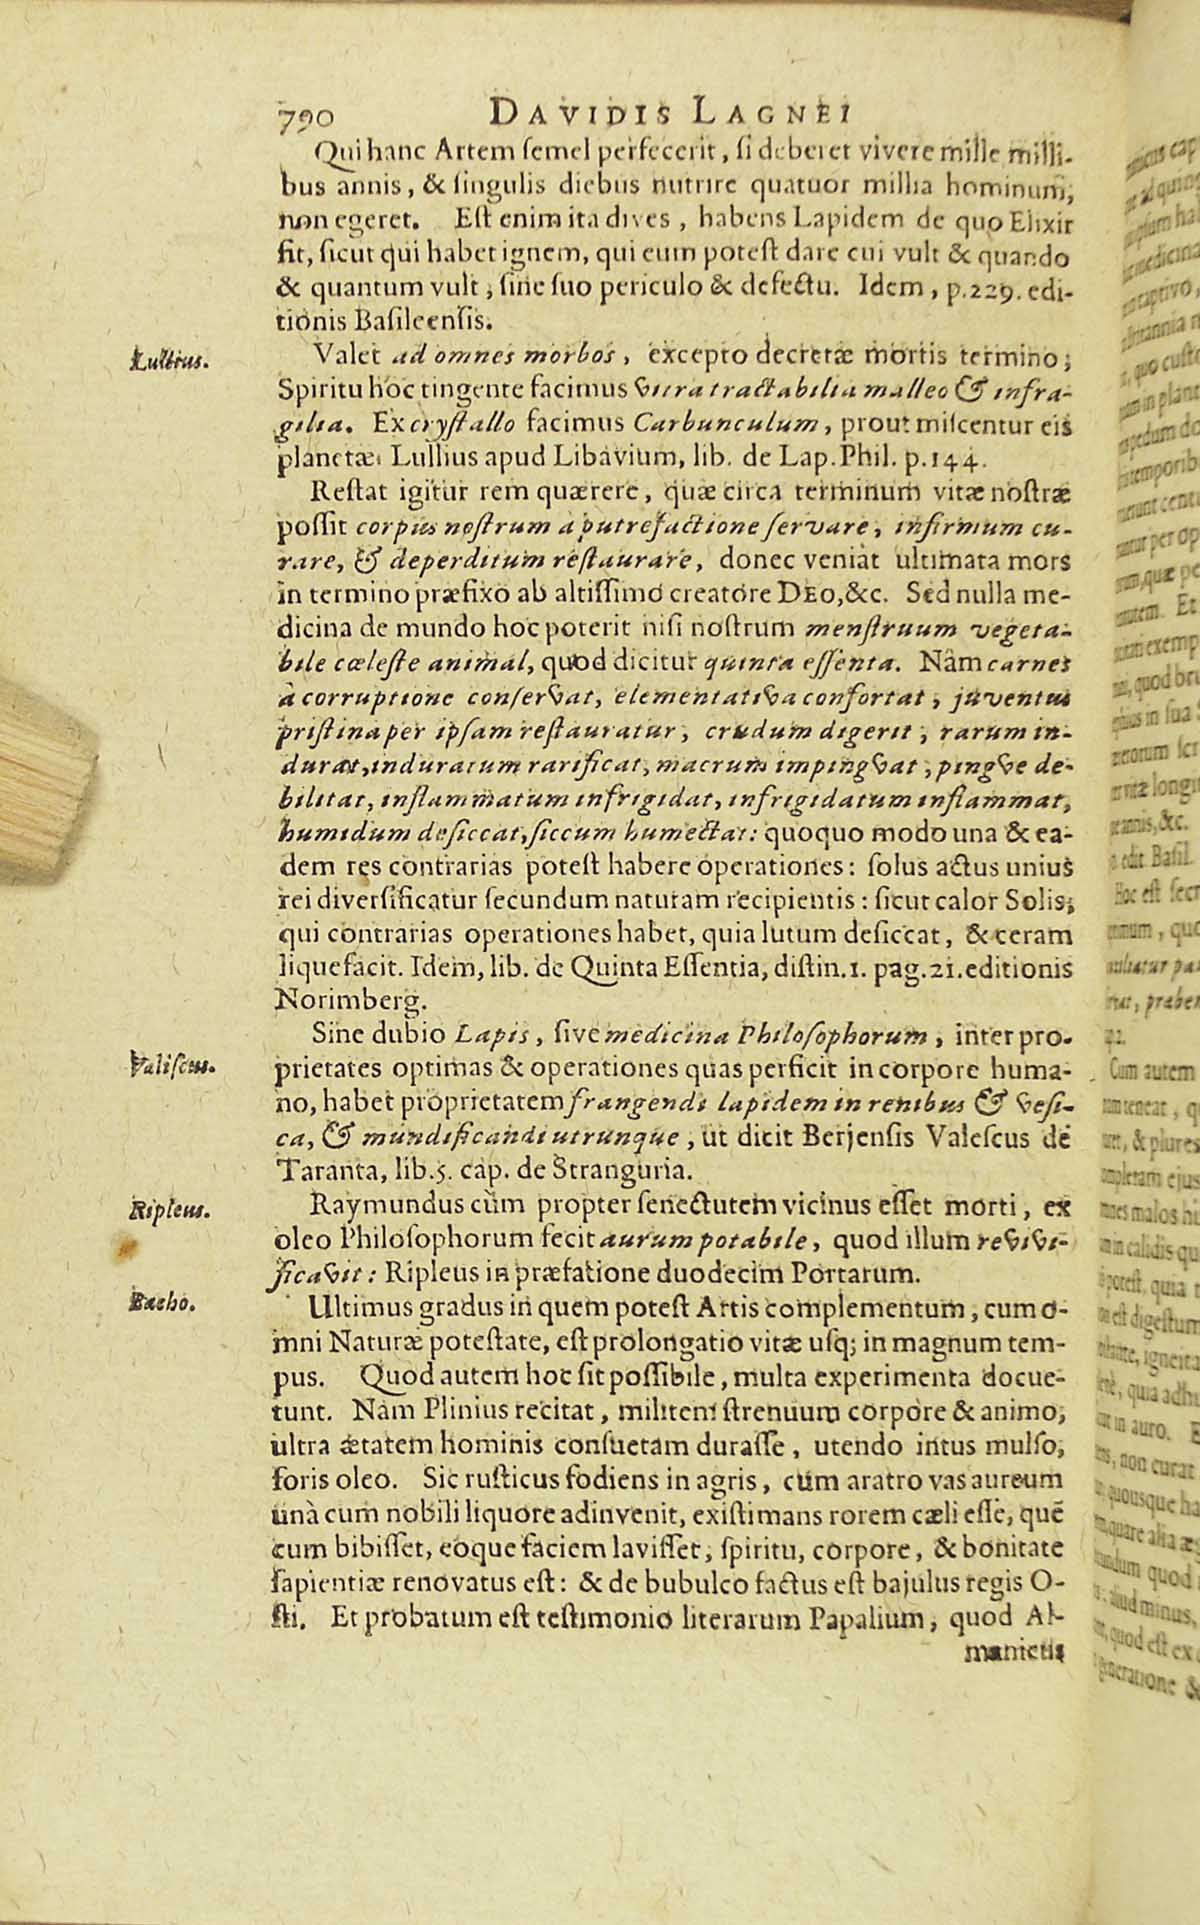 790 DAVIDIS LAGNEI
Qui hanc Artem semel perfecerit, si deberet vivere mille milli-
bus annis, & singulis diebus nutrire quatuor millia hominum,
non egeret. Est enim ita dives, habens Lapidem de quo Elixir
fit, sicut qui habet ignem, qui eum potest dare cui vult & quando
& quantum vult, sine suo periculo & defectu. Idem, p.229. edi-
tionis Basileensis.
Lullius.
Valet ad omnes morbos, excepto decretæ mortis termino;
Spiritu hoc tingente facimus vitra tractabilia malleo & infra-
gilia. Ex crystallo facimus Carbunculum, prout miscentur eis
planetæ. Lullius apud Libavium, lib. de Lap. Phil. p.144.
Restat igitur rem quærere, quæ circa terminum vitæ nostræ
possit corpus nostrum à putrefactione servare, infirmum cu-
rare, & deperditum restaurare, donec veniat ultimata mors
in termino præfixo ab altissimo creatore DEO, &c. Sed nulla me-
dicina de mundo hoc poterit nisi nostrum menstruum vegeta-
bile cœleste animal, quod dicitur quinta essentia. Nam carnes
à corruptione conservat, elementativa confortat, juventus
pristina per ipsam restauratur, crudum digerit, rarum in-
durat, induratum rarificat, macrum impingvat, pingve de-
bilitat, inflammatum infrigidat, infrigidatum inflammat,
humidum desiccat, siccum humectat: quoquo modo una & ea-
dem res contrarias potest habere operationes: solus actus unius
rei diversificatur secundum naturam recipientis: sicut calor Solis,
qui contrarias operationes habet, quia lutum desiccat, & ceram
liquefacit. Idem, lib. de Quinta Essentia, distin.1. pag.21. editionis
Norimberg.
Valiscus.
Sine dubio Lapis, sive medicina Philosophorum, inter pro-
prietates optimas & operationes quas perficit in corpore huma-
no, habet proprietatem frangendi lapidem in renibus & vesi-
ca, & mundificandi utrunque, ut dicit Berjensis Valescus de
Taranta, lib.5. cap. de Stranguria.
Ripleus.
Raymundus cùm propter senectutem vicinus esset morti, ex
oleo Philosophorum fecit aurum potabile, quod illum revivi-
ficavit: Ripleus in præfatione duodecim Portarum.
Bacho.
Ultimus gradus in quem potest Artis complementum, cum o-
mni Naturæ potestate, est prolongatio vitæ usq; in magnum tem-
pus. Quod autem hoc sit possibile, multa experimenta docue-
runt. Nam Plinius recitat, militem strenuum corpore & animo,
ultra ætatem hominis consuetam durasse, utendo intus mulso,
foris oleo. Sic rusticus fodiens in agris, cum aratro vas aureum
unà cum nobili liquore adinvenit, existimans rorem cæli esse, quē
cum bibisset, eoque faciem lavisset, spiritu, corpore, & bonitate
sapientiæ renovatus est: & de bubulco factus est bajulus regis O-
sti. Et probatum est testimonio literarum Papalium, quod Al-
manicus